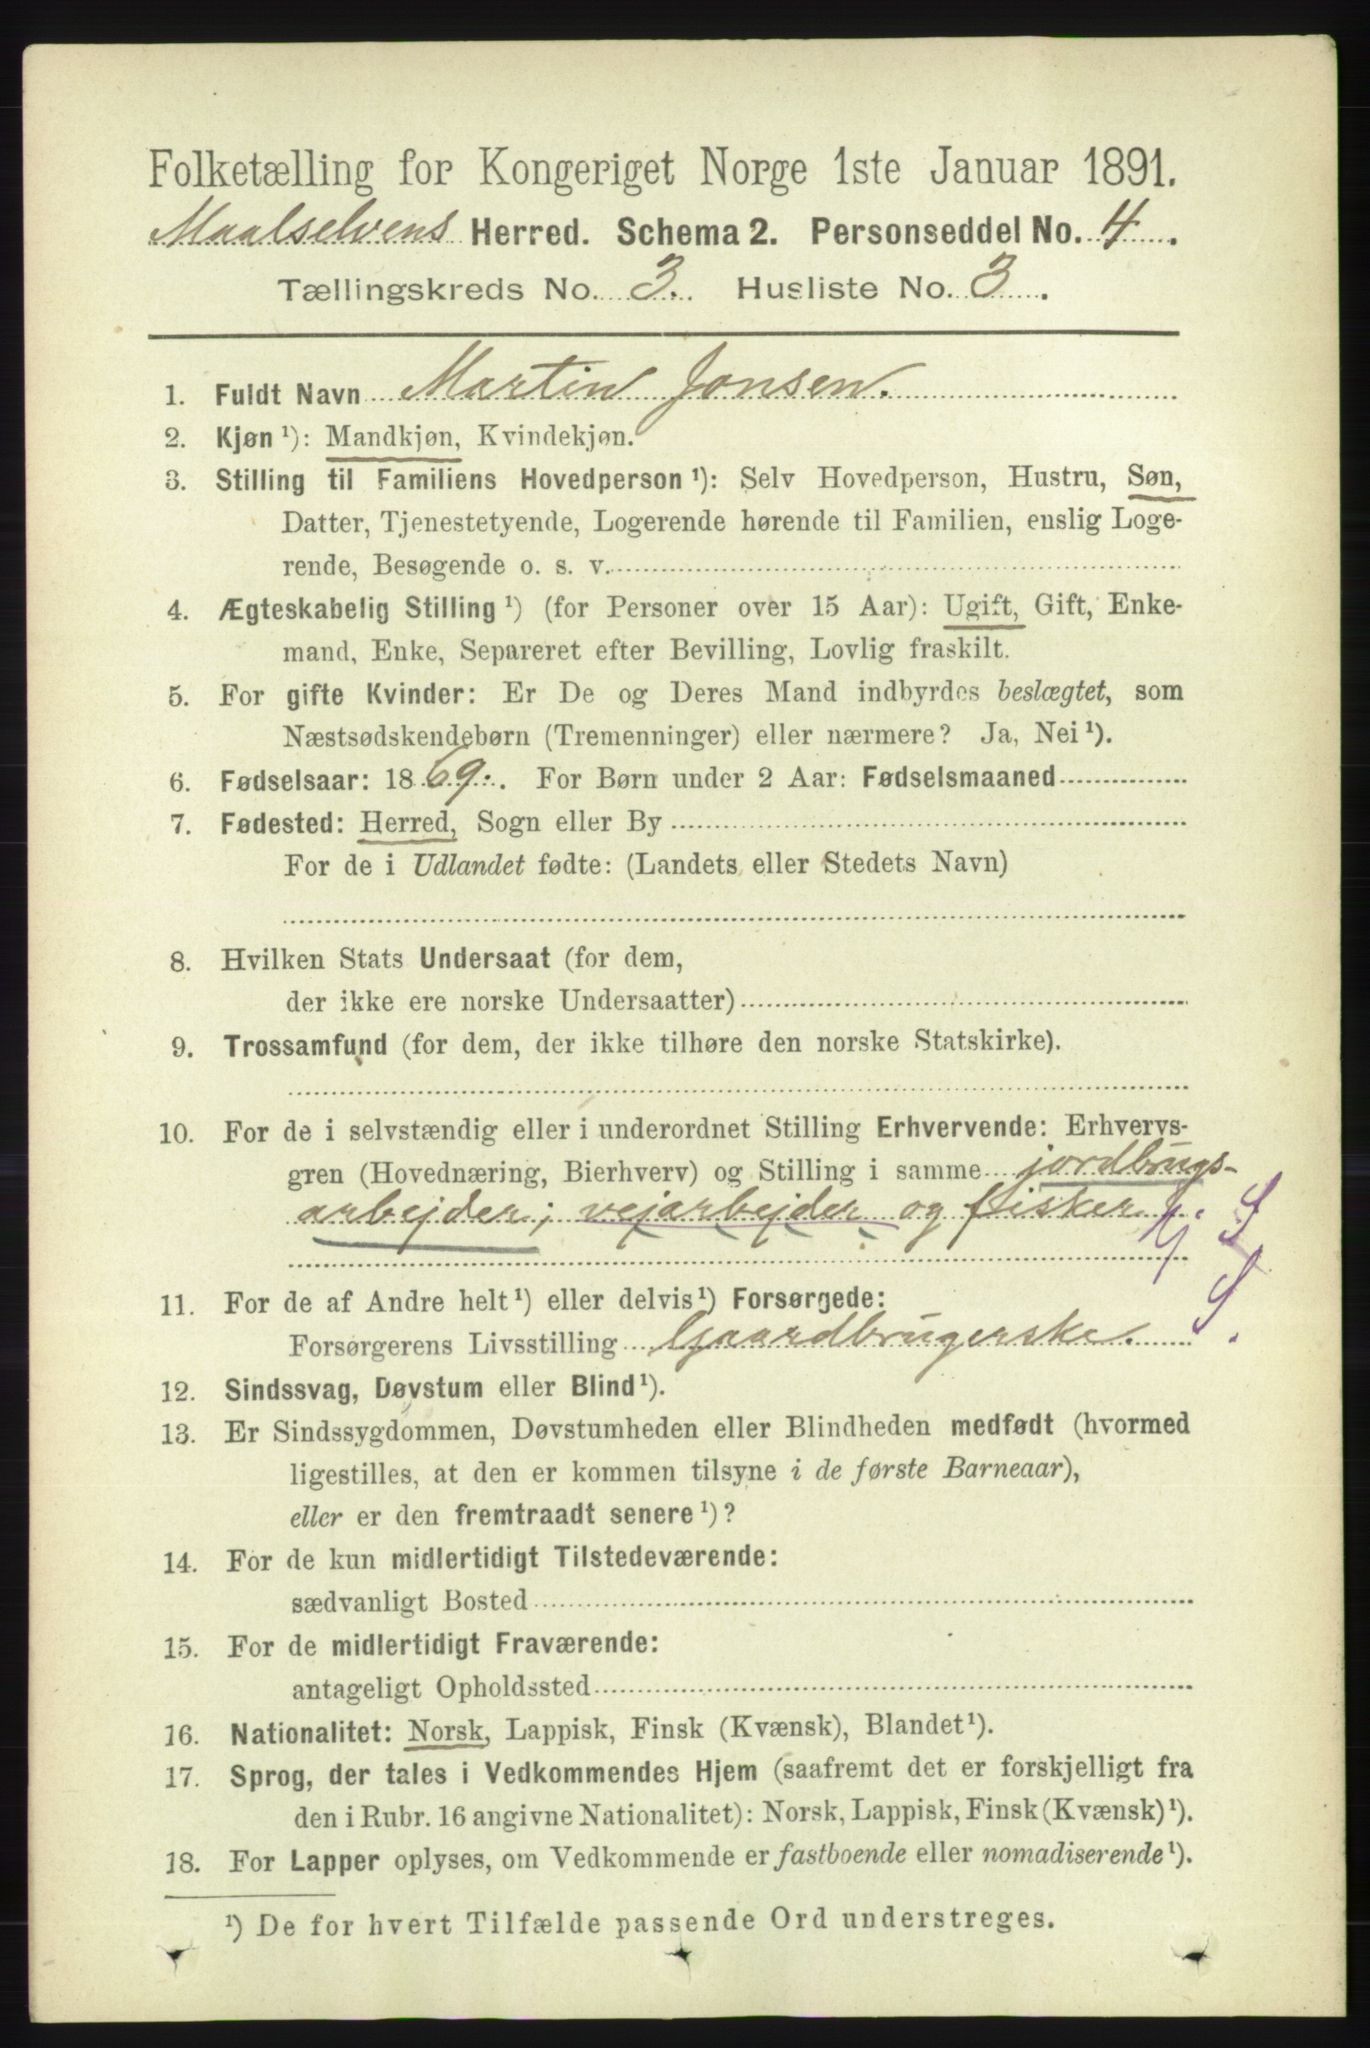 Folketælling for Kongeriget Norge 1ste Januar 1891.
Maalselvens Herred. Schema 2. Personseddel No. 4.
Tællingskreds No. 3. Husliste No. 3.
1. Fuldt Navn Martin Jonsen.
2. Kjøn ¹): Mandkjøn, Kvindekjøn.
3. Stilling til Familiens Hovedperson ¹): Selv Hovedperson, Hustru, Søn,
Datter, Tjenestetyende, Logerende hørende til Familien, enslig Loge-
rende, Besøgende o. s. v.
4. Ægteskabelig Stilling ¹) (for Personer over 15 Aar): Ugift, Gift, Enke-
mand, Enke, Separeret efter Bevilling, Lovlig fraskilt.
5. For gifte Kvinder: Er De og Deres Mand indbyrdes beslægtet, som
Næstsødskendebørn (Tremenninger) eller nærmere? Ja, Nei ¹).
6. Fødselsaar: 1869. For Børn under 2 Aar: Fødselsmaaned
7. Fødested: Herred, Sogn eller By
For de i Udlandet fødte: (Landets eller Stedets Navn)
8. Hvilken Stats Undersaat (for dem,
der ikke ere norske Undersaatter)
9. Trossamfund (for dem, der ikke tilhøre den norske Statskirke).
10. For de i selvstændig eller i underordnet Stilling Erhvervende: Erhvervs-
gren (Hovednæring, Bierhverv) og Stilling i samme jordbrugs-
arbejder; vejarbejder og fisker
11. For de af Andre helt ¹) eller delvis ¹) Forsørgede:
Forsørgerens Livsstilling Gaardbrugerske.
12. Sindssvag, Døvstum eller Blind ¹).
13. Er Sindssygdommen, Døvstumheden eller Blindheden medfødt (hvormed
ligestilles, at den er kommen tilsyne i de første Barneaar),
eller er den fremtraadt senere ¹)?
14. For de kun midlertidigt Tilstedeværende:
sædvanligt Bosted
15. For de midlertidigt Fraværende:
antageligt Opholdssted
16. Nationalitet: Norsk, Lappisk, Finsk (Kvænsk), Blandet ¹).
17. Sprog, der tales i Vedkommendes Hjem (saafremt det er forskjelligt fra
den i Rubr. 16 angivne Nationalitet): Norsk, Lappisk, Finsk (Kvænsk) ¹).
18. For Lapper oplyses, om Vedkommende er fastboende eller nomadiserende ¹).
¹) De for hvert Tilfælde passende Ord understreges.